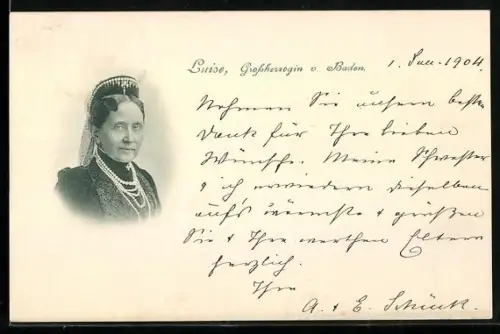 Luise, Großherzogin v. Baden.
1. Jan. 1904.
Nehmen Sie unsern besten
Dank für Ihre lieben
Wünsche. Meine Schwester
& ich erwiedern dieselben
auf's wärmste & grüßen
Sie & Ihre werthen Eltern
herzlich.
Ihre
A. & E.